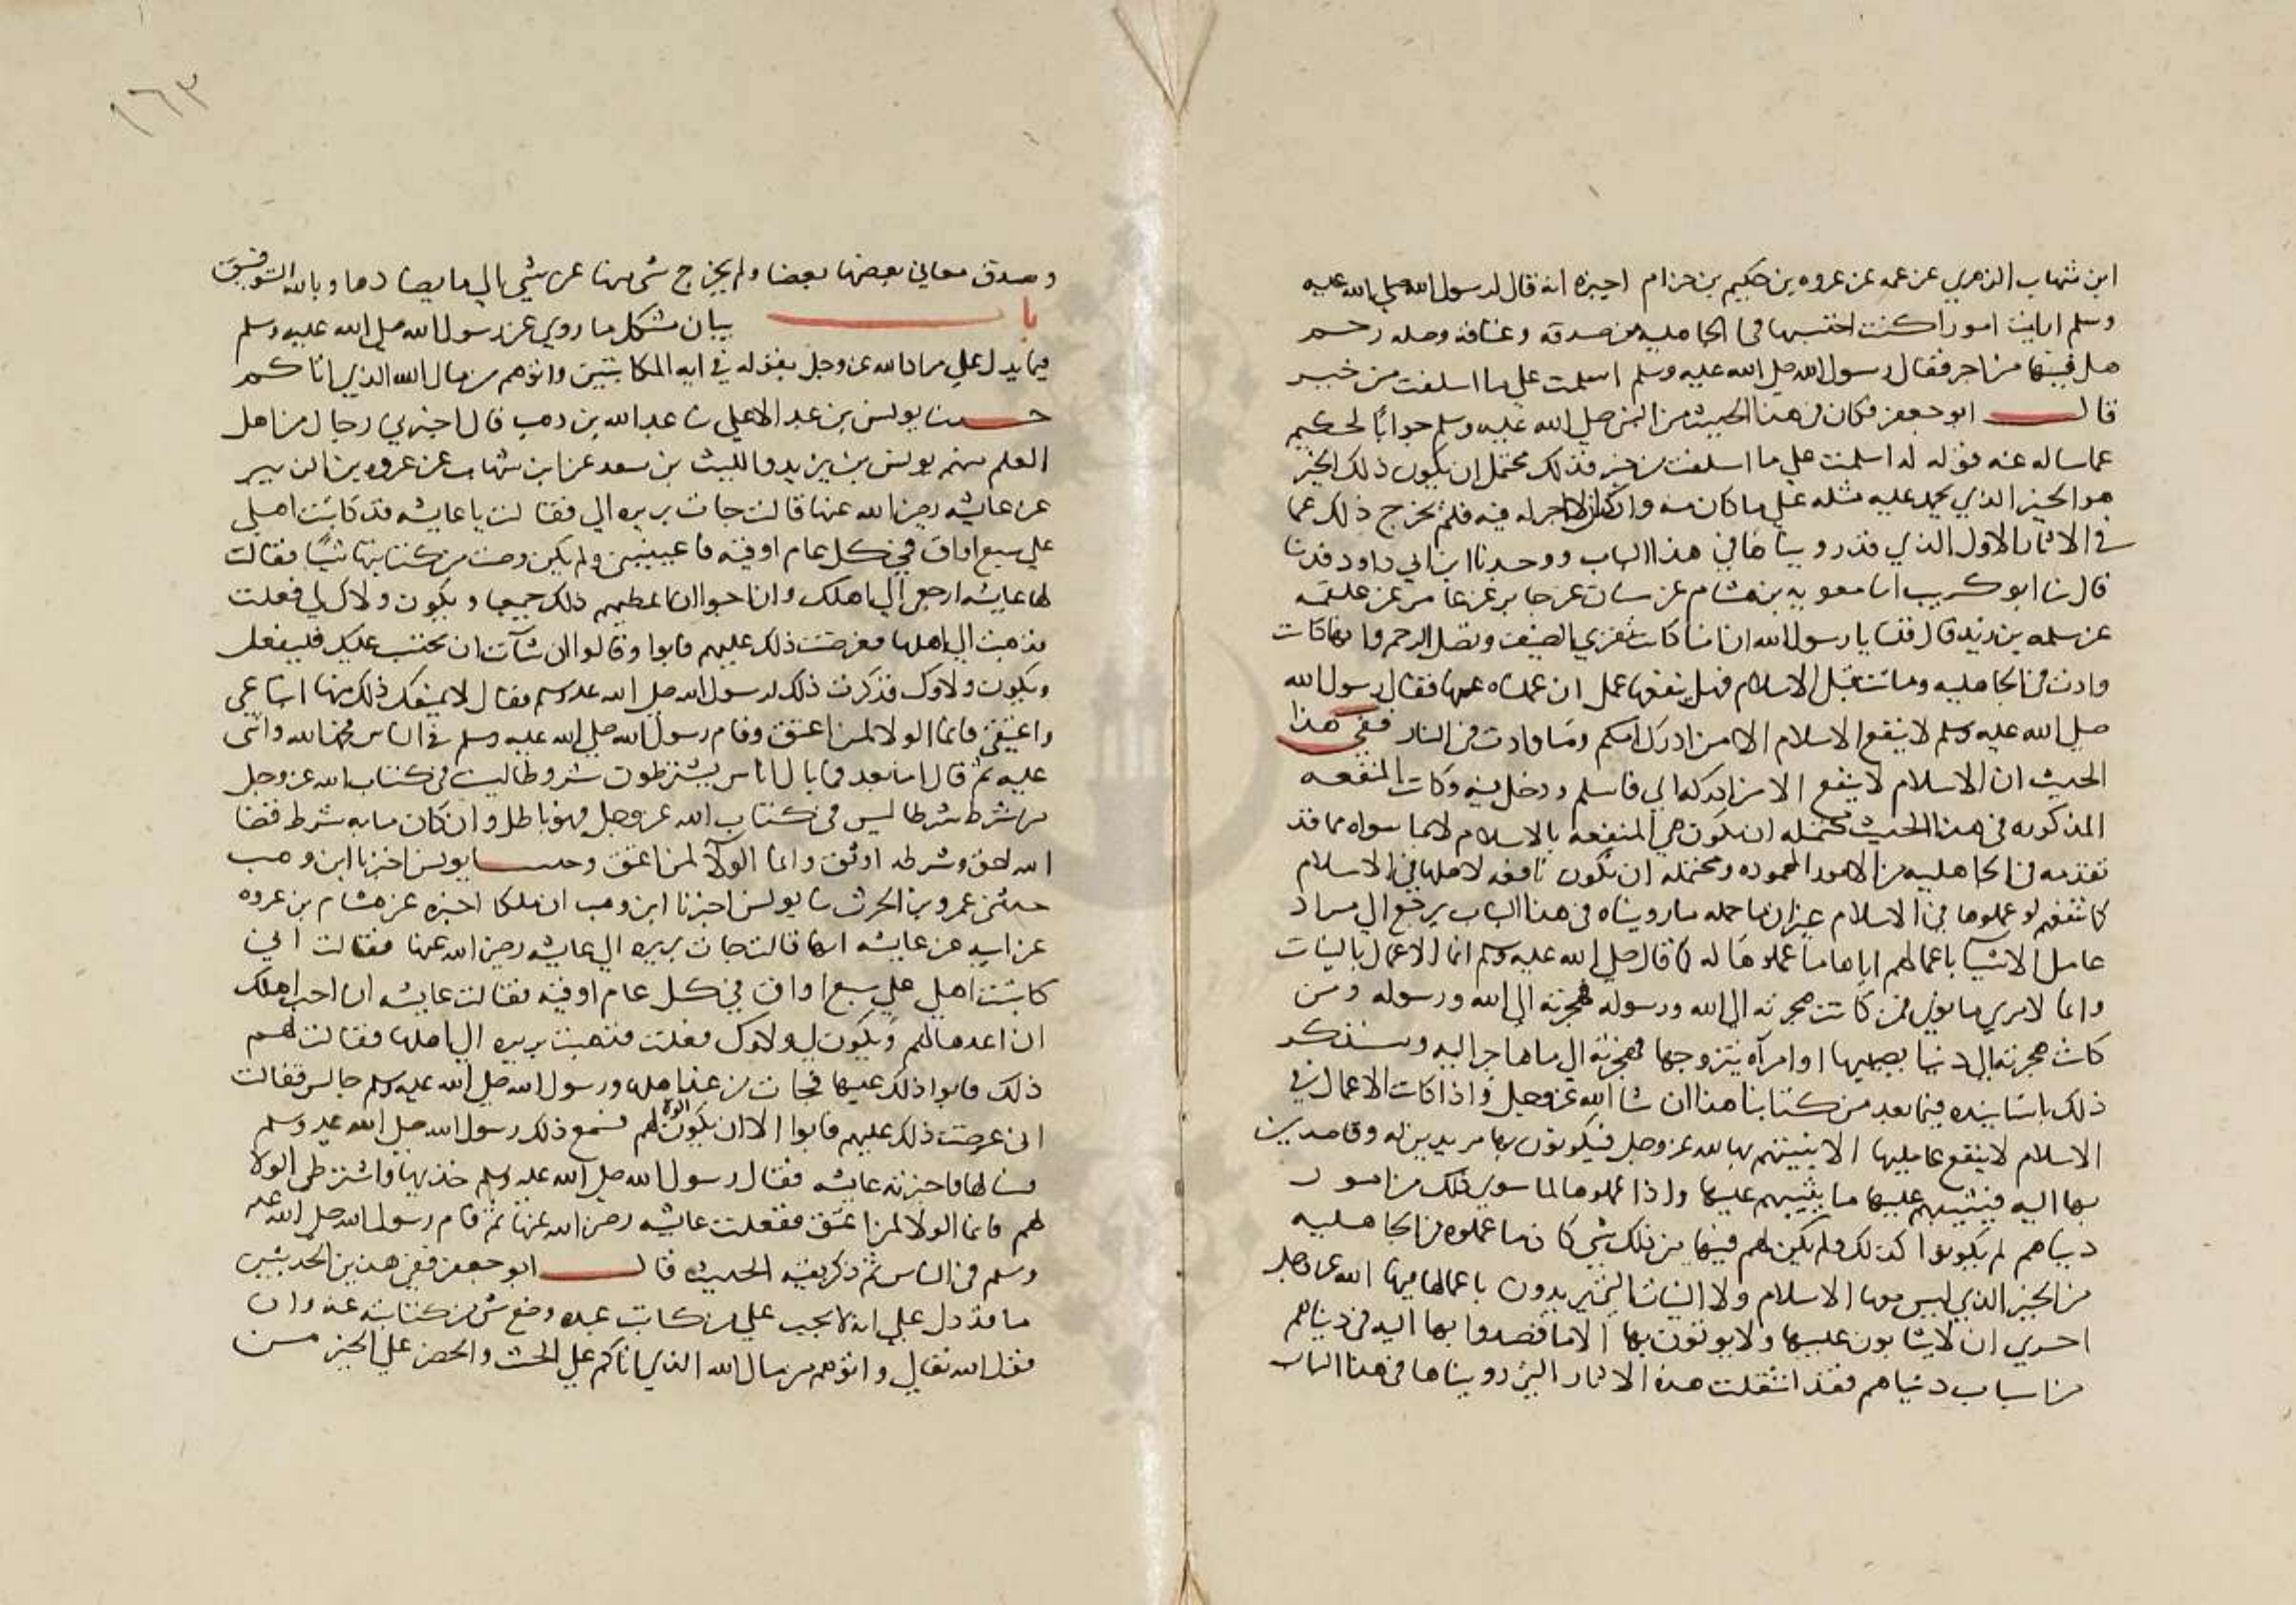 ابن شهاب الزهري عن عمه عن عروه بن حكيم بن حزام اخبره انه قال لرسول الله صلى الله عليه
وسلم ارايت امورا كنت اتحنث بها في الجاهليه من صدقه وعتاقه وصله رحم
هل فيها من اجر فقال رسول الله صلى الله عليه وسلم اسلمت على ما اسلفت من خير
قال ابو جعفر فكان في هذا الحديث من النبي صلى الله عليه وسلم جوابا لحكيم
عما ساله عنه قوله له اسلمت على ما اسلفت من خير فذلك محتمل ان يكون ذلك الخير
هو الخير الذي يحمد عليه مثله على ما كان منه وان كان لا اجر له فيه فلم يخرج ذلك عما
في الاثار الاول الذي قد رويناها في هذا الباب ووجدنا ابن ابي داود قد نا
قال نا ابو كريب انا معويه بن هشام عن سفيان عن جابر عن عامر عن علقمه
عن سلمه بن يزيد قال قلنا يا رسول الله ان امنا كانت تقري الضيف وتصل الرحم وانها كانت
وادت في الجاهليه وماتت قبل الاسلام فهل ينفعها عمل ان عملناه عنها فقال رسول الله
صلى الله عليه وسلم لا ينفع الاسلام الا من ادرك امكم وما وادت في النار ففي هذا
الحديث ان الاسلام لا ينفع الا من ادركه الي فاسلم ودخل فيه وكانت المنفعه
المذكوره في هذا الحديث محتمله ان تكون هي المنفعه بالاسلام لا بما سواه مما قد
تقدمه في الجاهليه من الامور المحموده ومحتمله ان تكون نافعه لاهلها في الاسلام
كما تنفعهم لو عملوها في الاسلام غير ان ما حمله ما رويناه في هذا الباب يرجع الى مراد
عامل الاشيا باعمالهم اياها ما عملوها له كما قال صلى الله عليه وسلم انما الاعمال بالنيات
وانما لامري ما نوى فمن كانت هجرته الى الله ورسوله فهجرته الى الله ورسوله ومن
كانت هجرته الى دنيا يصيبها او امرآه يتزوجها فهجرته الى ما هاجر اليه وسنذكر
ذلك باسانيده فيما بعد من كتابنا هذا ان شا الله عز وجل واذا كانت الاعمال في
الاسلام لا ينفع عامليها الا بنيتهم بها لله عز وجل فيكونون بها مريدين له وقاصدين
بها اليه فيثيبهم عليها ما يثيبهم عليها واذا عملوها لما سوى ذلك من امور
دنياهم لم يكونوا كذلك ولم يكن لهم فيها من ذلك شي كان ما عملوه في الجاهليه
من الخير الذي ليس معها الاسلام ولا النيات التي يريدون باعمالها فيها الله عز وجل
احرى ان لا يثابون عليها ولا يوتون بها الا ما قصدوا بها اليه في دنياهم
من اسباب دنياهم فقد اتفقت هذه الاثار التي رويناها في هذا الباب
١٦٣
وصدق معاني بعضها بعضا ولم يخرج شي منها عن شي الى ما يضادها وبالله التوفيق
باب بيان مشكل ما روي عن رسول الله صلى الله عليه وسلم
فيما يدل على مراد الله عز وجل بقوله في ايه المكاتبتين واتوهم من مال الله الذي اتاكم
حدثنا يونس بن عبد الاعلى نا عبد الله بن وهب قال اخبرني رجال من اهل
العلم منهم يونس بن يزيد والليث بن سعد عن ابن شهاب عن عروه بن الزبير
عن عايشه رضي الله عنها قالت جات بريره الي فقالت يا عايشه قد كاتبت اهلي
على سبع اواق في كل عام اوقيه فاعينيني ولم يكن قضت من كتابتها شيا فقالت
لها عايشه ارجعي الى اهلك فان احبوا ان اعطيهم ذلك جميعا ويكون ولاك لي فعلت
فذهبت الى اهلها فعرضت ذلك عليهم فابوا وقالوا ان شآت ان تحتسب عليك فليفعل
ويكون ولاوك فذكرت ذلك لرسول الله صلى الله عليه وسلم فقال لا يمنعك ذلك منها ابتاعي
واعتقي فانما الولا لمن اعتق وقام رسول الله صلى الله عليه وسلم في الناس فحمد الله واثنى
عليه ثم قال اما بعد فما بال اناس يشترطون شروطا ليست في كتاب الله عز وجل
من شرط شرطا ليس في كتاب الله عز وجل فهو باطل وان كان مايه شرط فقضا
الله احق وشرطه اوثق وانما الولآ لمن اعتق وحدثنا يونس اخبرنا ابن وهب
حدثني عمرو بن الحرث نا يونس اخبرنا ابن وهب ان ملكا اخبره عن هشام بن عروه
عن ابيه عن عايشه انها قالت جات بريره الى عايشه رضي الله عنها فقالت اني
كاتبت اهلي على سبع اواق في كل عام اوقيه فقالت عايشه ان احب اهلك
ان اعدها لهم ويكون لي ولاوك فعلت فذهبت بريره الى اهلها فقالت لهم
ذلك فابوا ذلك عليها فجات من عند اهلها ورسول الله صلى الله عليه وسلم جالس فقالت
اني عرضت ذلك عليهم فابوا الا ان يكون الولا لهم فسمع ذلك رسول الله صلى الله عليه وسلم
فسالها فاخبرته عايشه فقال رسول الله صلى الله عليه وسلم خذيها واشترطي الولا
لهم فانما الولا لمن اعتق ففعلت عايشه رضي الله عنها ثم قام رسول الله صلى الله عليه
وسلم في الناس ثم ذكر بقيه الحديث قال ابو جعفر ففي هذين الحديثين
ما قد دل على انه لا يجب على من كاتب عبده وضع شي من كتابته عنه وان
قول الله تعالى واتوهم من مال الله الذي اتاكم على الحث والحض على الخير من